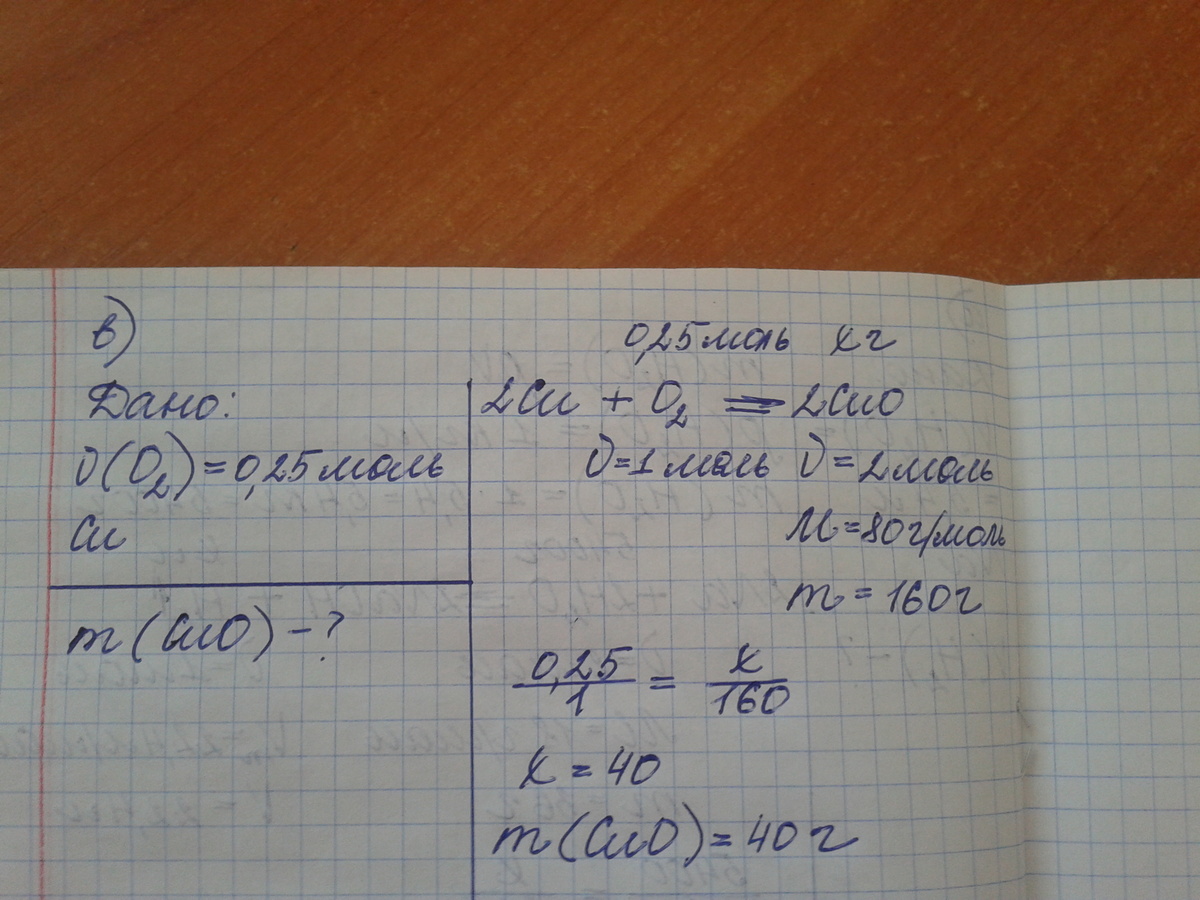 в)
Дано:
ν(O₂) = 0,25 моль
Cu
m(CuO) – ?
0,25 моль х г
2Cu + O₂ = 2CuO
ν = 1 моль ν = 2 моль
M = 80 г/моль
m = 160 г
0,25/1 = х/160
х = 40
m(CuO) = 40 г